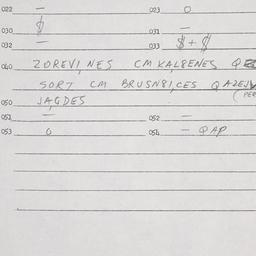 022 — 023 0
030 $ 031 —
032 — 033 $ + $
040 ZOREVI, NES CM KALBENES
SORT CM BRUSNBI, CES
(PER
050 JAGDES
051 — 052 —
053 0 054 — QAP